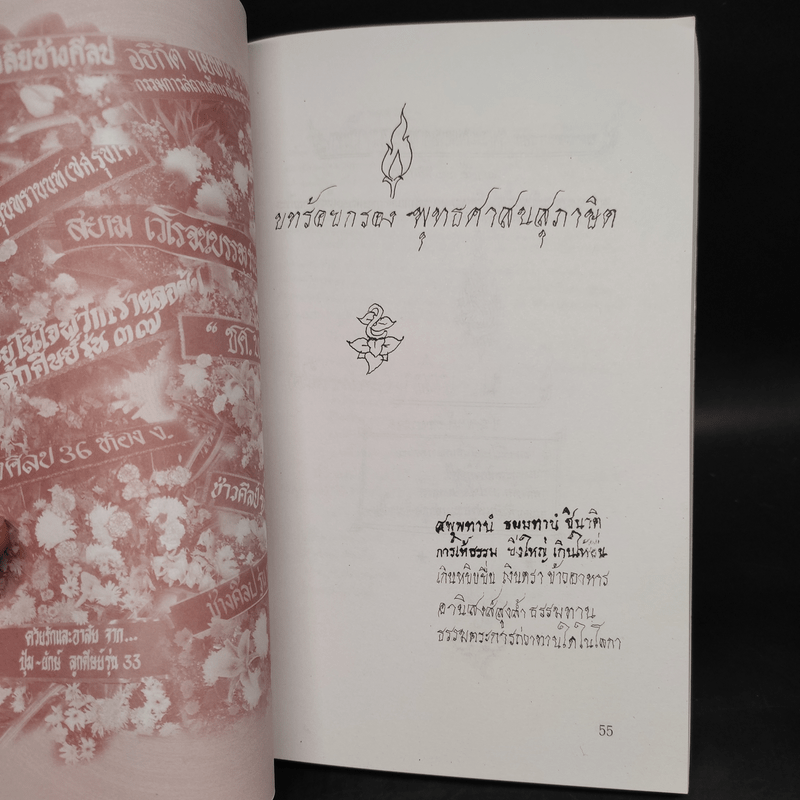 กรรมการสถาบัน
สยาม เวโรจนบรรม
ลูกศิษย์รุ่น ๓๗
"ชศ.
ศิลป 36 ห้อง ง.
ชาวศิลป
ช่างศิลป
ด้วยรักและอาลัย จาก...
ปุ้ม-ยักษ์ ลูกศิษย์รุ่น 33
บทร้อยกรอง พุทธศาสนสุภาษิต
สพฺพทานํ ธมฺมทานํ ชินาติ
การให้ธรรม ยิ่งใหญ่ เกินให้อื่น
เกินหยิบยื่น เงินตรา ข้าวอาหาร
อานิสงส์สูงล้ำ ธรรมทาน
ธรรมตระการกว่าทานใดในโลกา
55